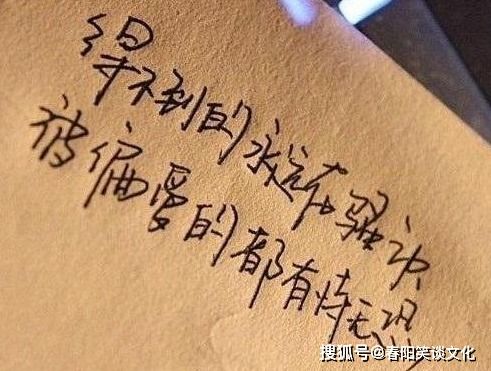 得不到的永远在骚动
被偏爱的都有恃无恐
搜狐号@春阳笑谈文化